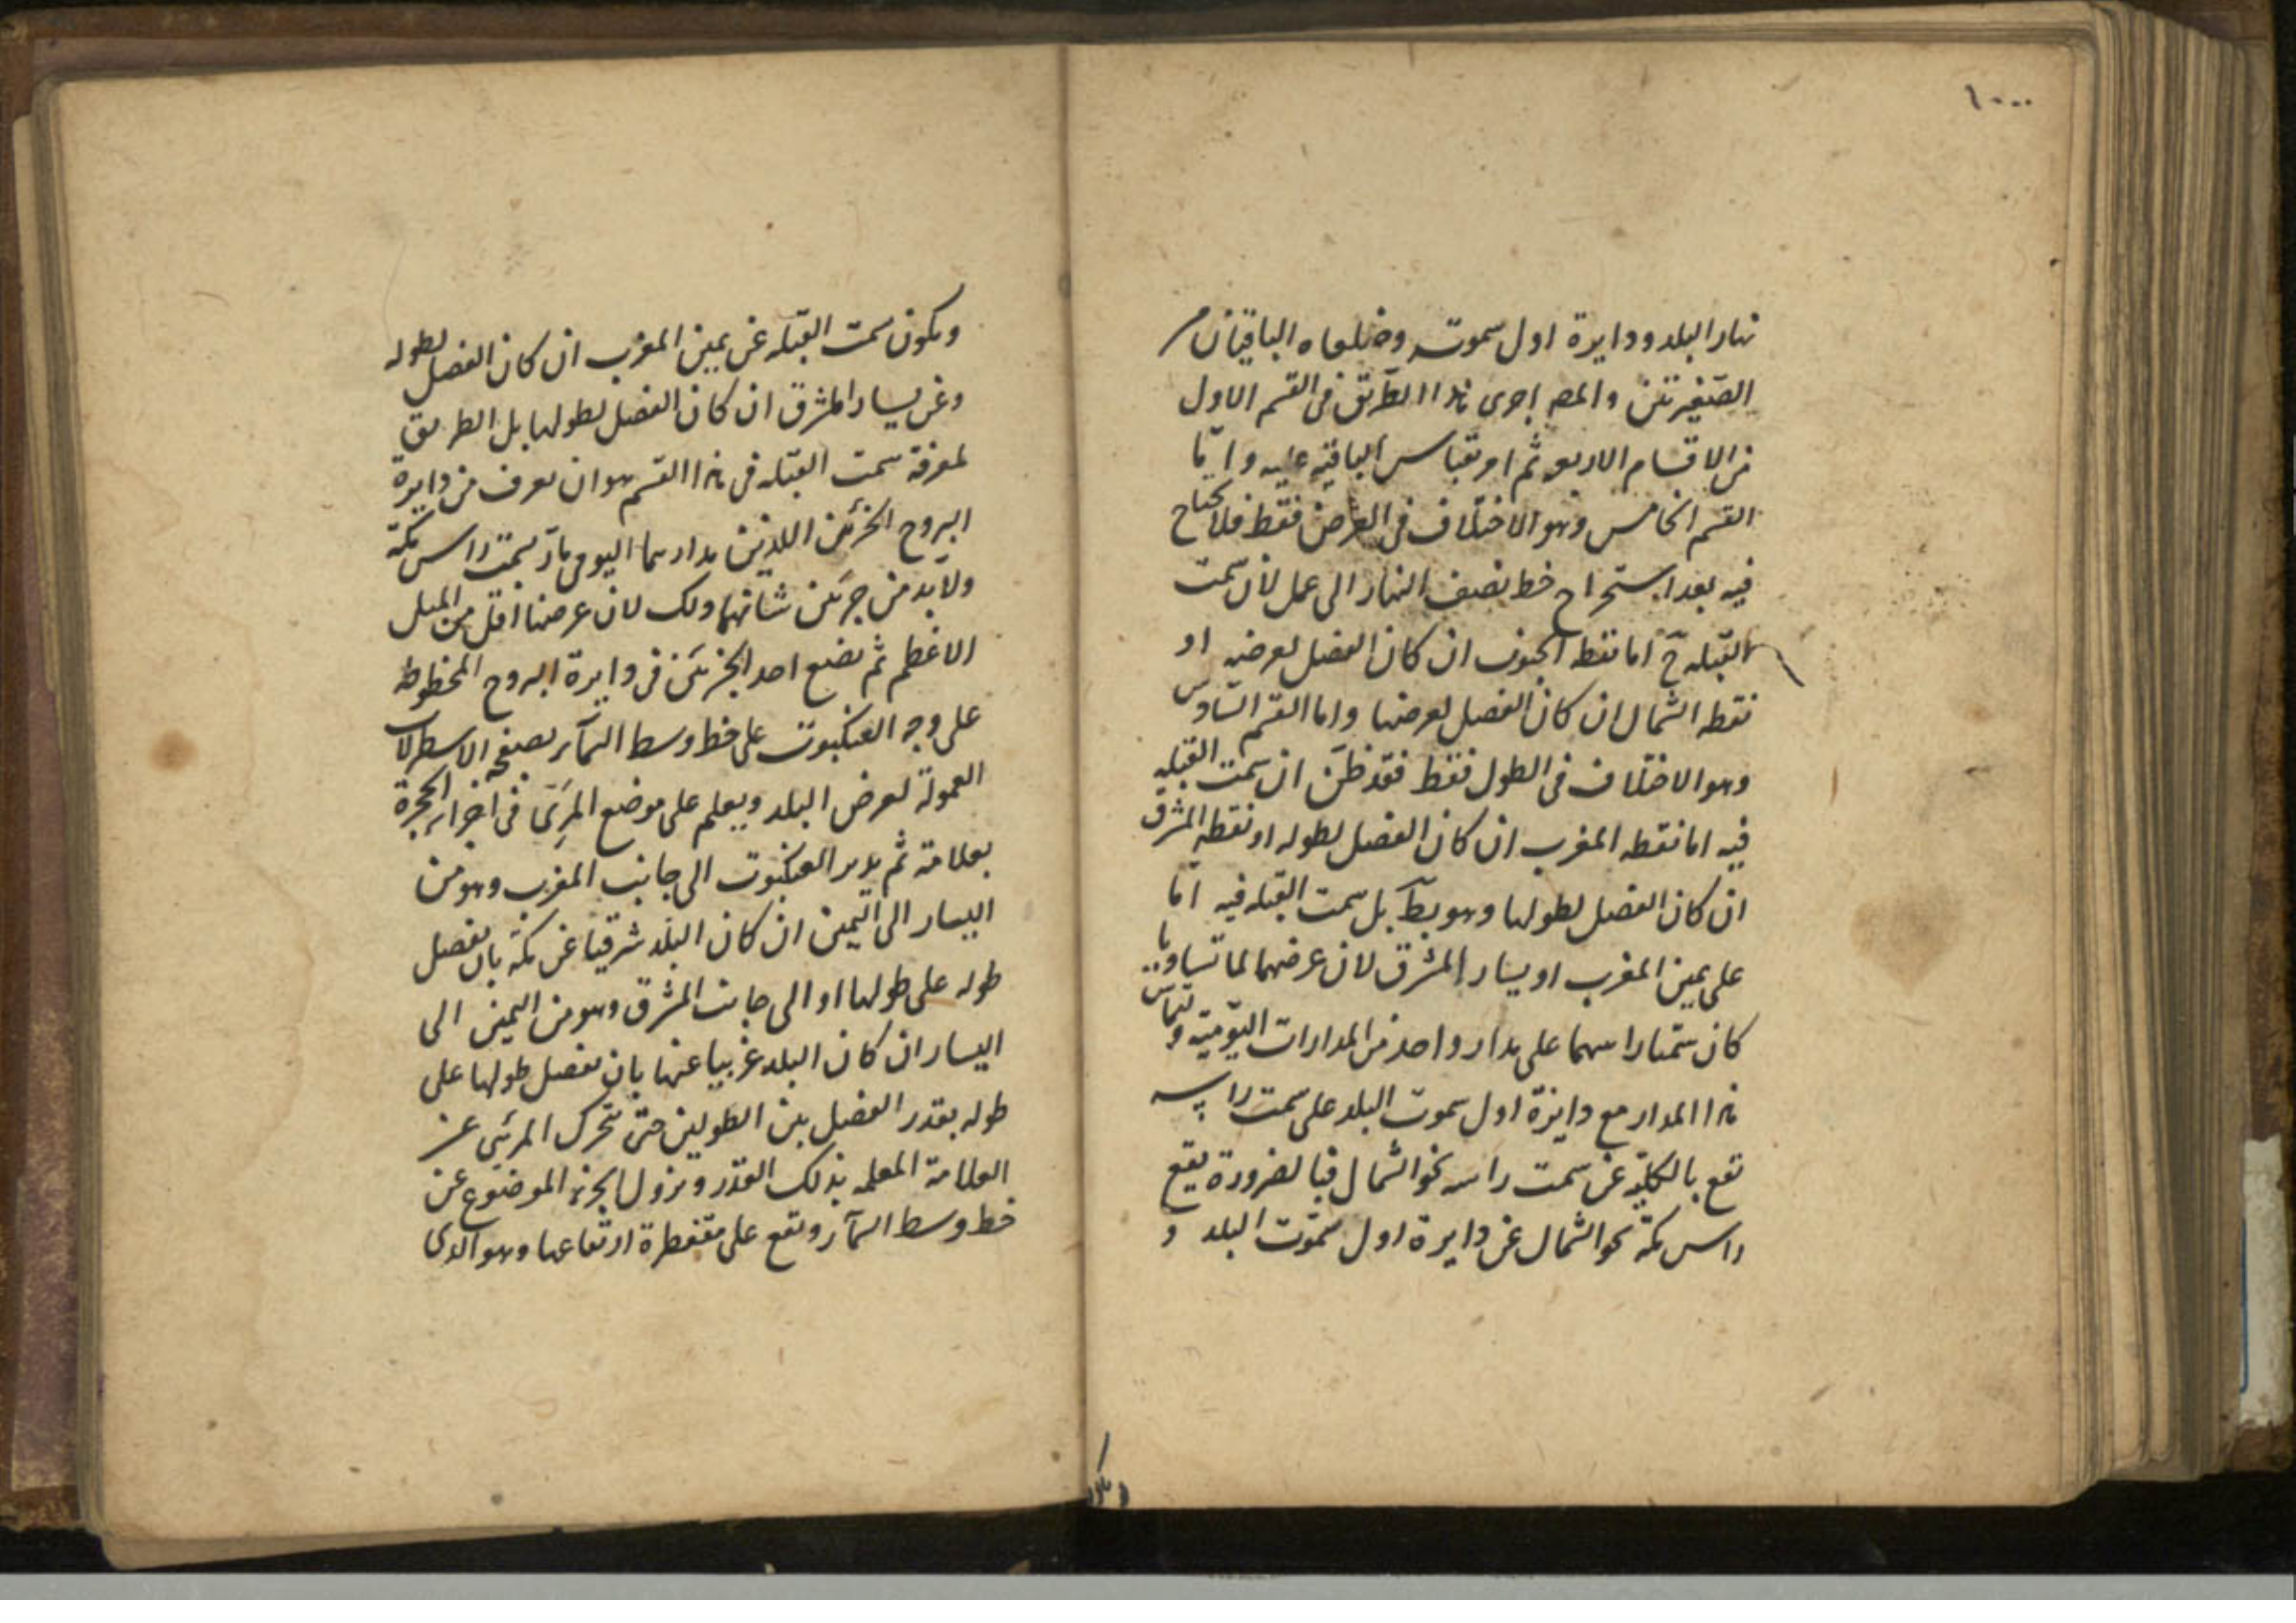 ١٠٠
نهار البلد ودايرة اول سموته وضلعاه الباقيان من
الصغيرتين والمص اجرى هذا الطريق فى القسم الاول
من الاقسام الاربعه ثم امر بقياس الباقيه عليه واما
القسم الخامس وهو الاختلاف فى العرض فقط فلا يحتاج
فيه بعد استخراج خط نصف النهار الى عمل لان سمت
القبله ح اما نقطه الجنوب ان كان الفضل لعرضه او
نقطه الشمال ان كان الفضل لعرضها واما القسم السادس
وهو الاختلاف فى الطول فقط فقد ظن ان سمت القبله
فيه اما نقطه المغرب ان كان الفضل لطوله او نقطه المشرق
ان كان الفضل لطولها وهو بط بل سمت القبله فيه اما
على يمين المغرب او يسار المشرق لان عرضهما لما تساويا
كان سمتا راسهما على مدار واحد من المدارات اليومية وتماس
هذا المدار مع دايرة اول سموت البلد على سمت راسه
تقع بالكلية عن سمت راسه نحو الشمال فبالضرورة يقع
راس مكة نحو الشمال عن دايرة اول سموت البلد و
ويكون
ويكون سمت القبله عن يمين المغرب ان كان الفضل لطوله
وعن يسار المشرق ان كان الفضل لطولها بل الطريق
لمعرفة سمت القبله فى هذا القسم هو ان يعرف من دايرة
البروج الجزئين اللذين مدارهما اليومى مار بسمت راس مكة
ولابد من جزئين شانهما ذلك لان عرضها اقل من الميل
الاعظم ثم نضع احد الجزئين فى دايرة البروج المخطوطة
على وجه العنكبوت على خط وسط السمآء بصفحه الاسطرلاب
المعمولة لعرض البلد ويعلم على موضع المرئى فى اجزاء الحجرة
بعلامة ثم يدير العنكبوت الى جانب المغرب وهو من
اليسار الى اليمين ان كان البلد شرقيا عن مكة بان يفضل
طوله على طولها او الى جانب المشرق وهو من اليمين الى
اليسار ان كان البلد غربيا عنها بان يفضل طولها على
طوله بقدر الفضل بين الطولين حتى يتحرك المرئى عن
العلامة المعلمه بذلك القدر ويزول الجزء الموضوع عن
خط وسط السمآء ويقع على مقنطرة ارتفاعها وهو الذى